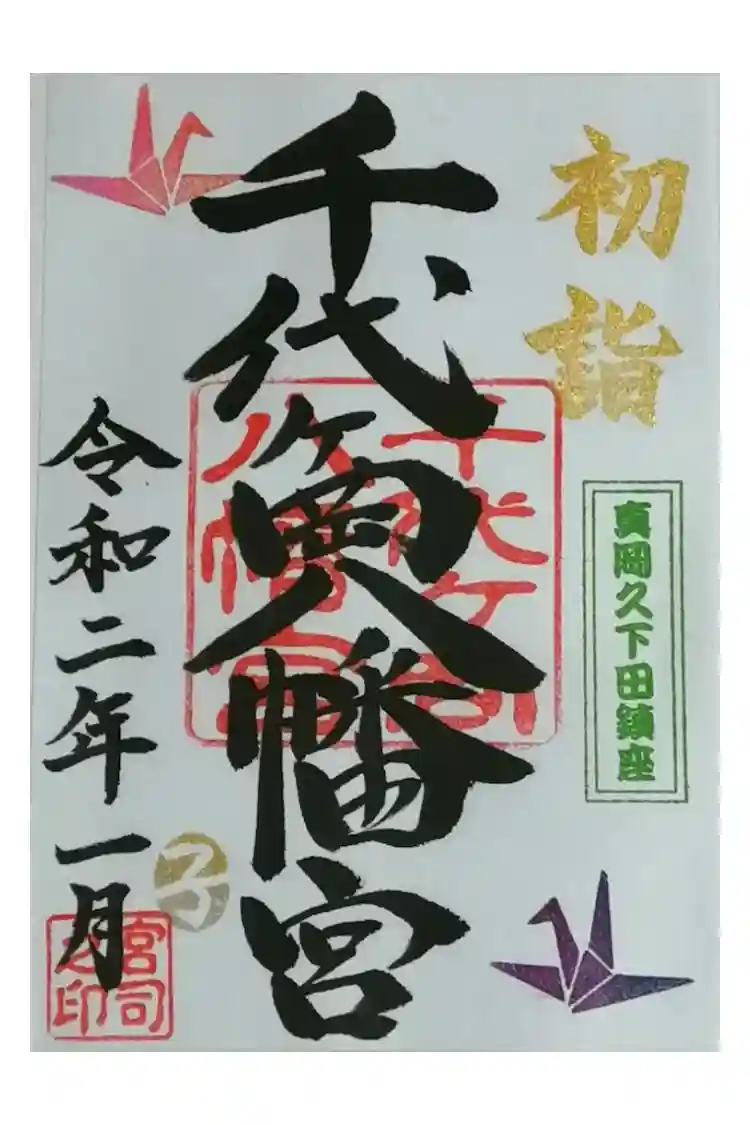 初詣
真岡久下田鎮座
千代ヶ岡八幡宮
千代ヶ岡八幡宮
子
令和二年一月
宮司之印